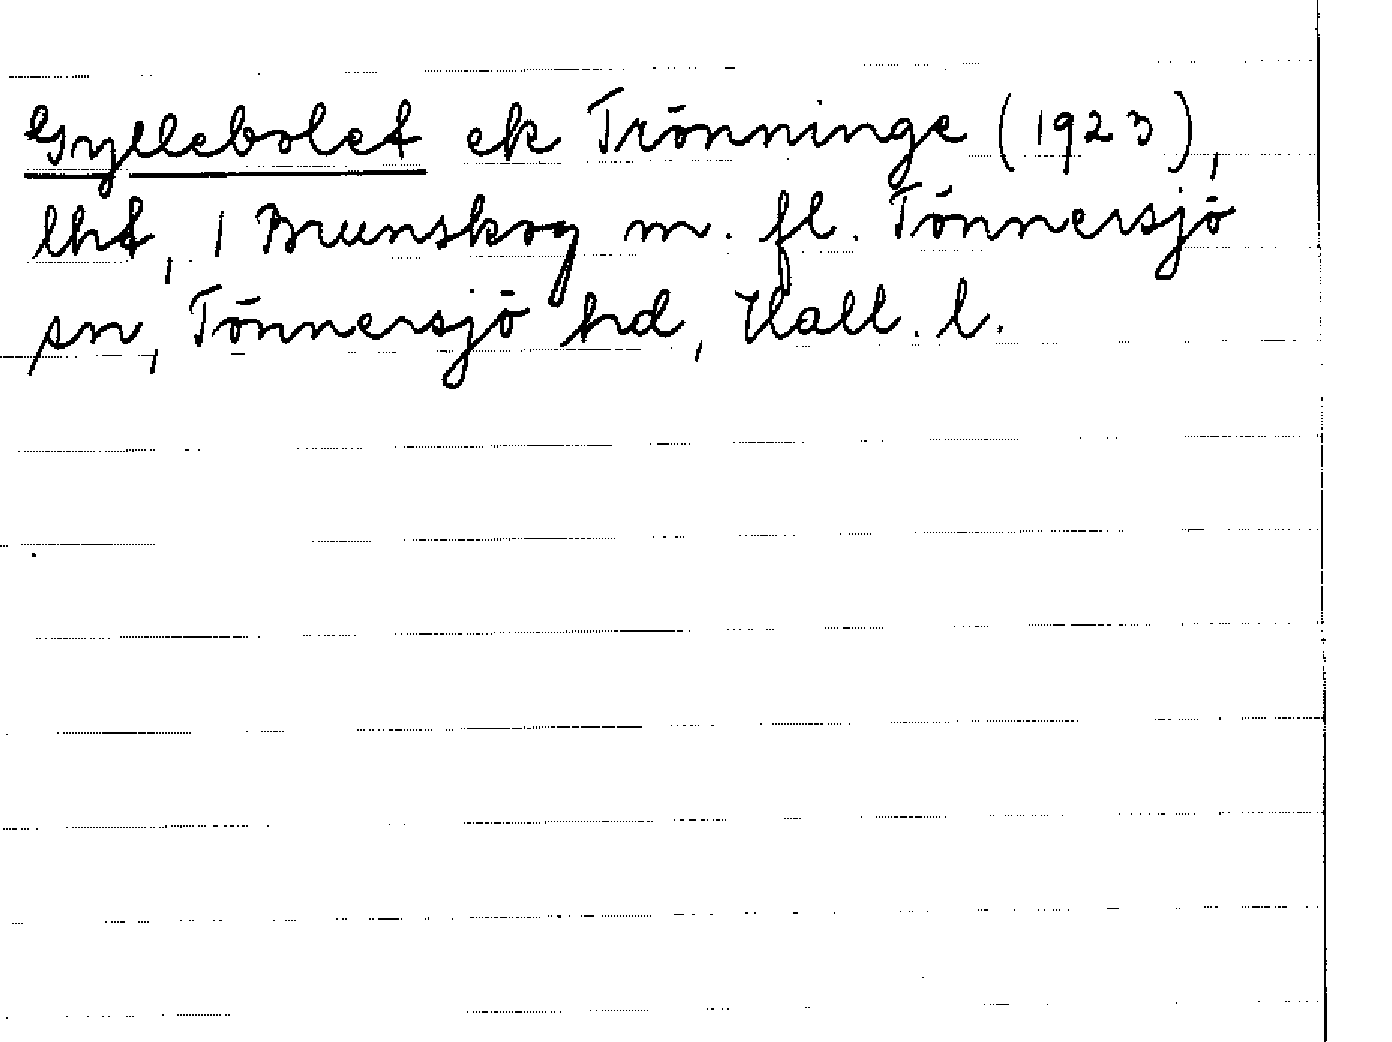 Gyllebolet ek Trönninge (1923),
lht, 1 Brunskog m. fl. Tönnersjö
sn, Tönnersjö hd, Hall. l.